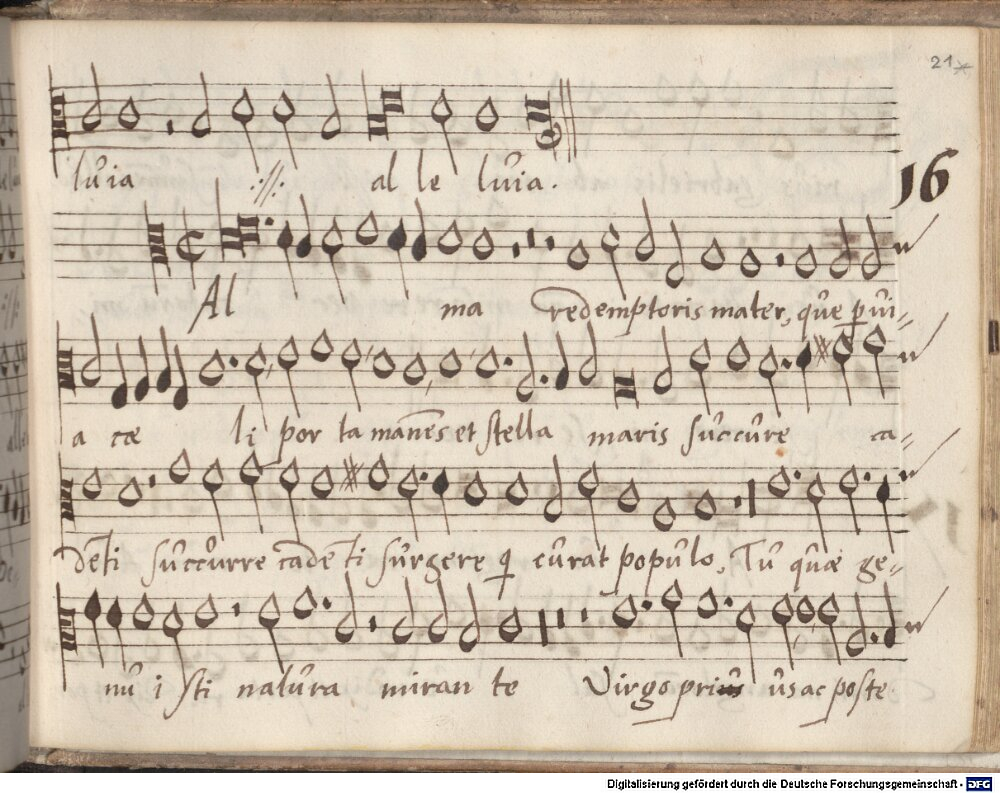 21
luia ://: al le luia.
16
Al ma redemptoris mater, que pui-
a cæ li por ta manēs et stella maris succure ca-
dēti succurre cadēti surgere q curat populo, Tu quæ ge-
nu i sti natura miran te Virgo prius us ac poste
Digitalisierung gefördert durch die Deutsche Forschungsgemeinschaft - DFG